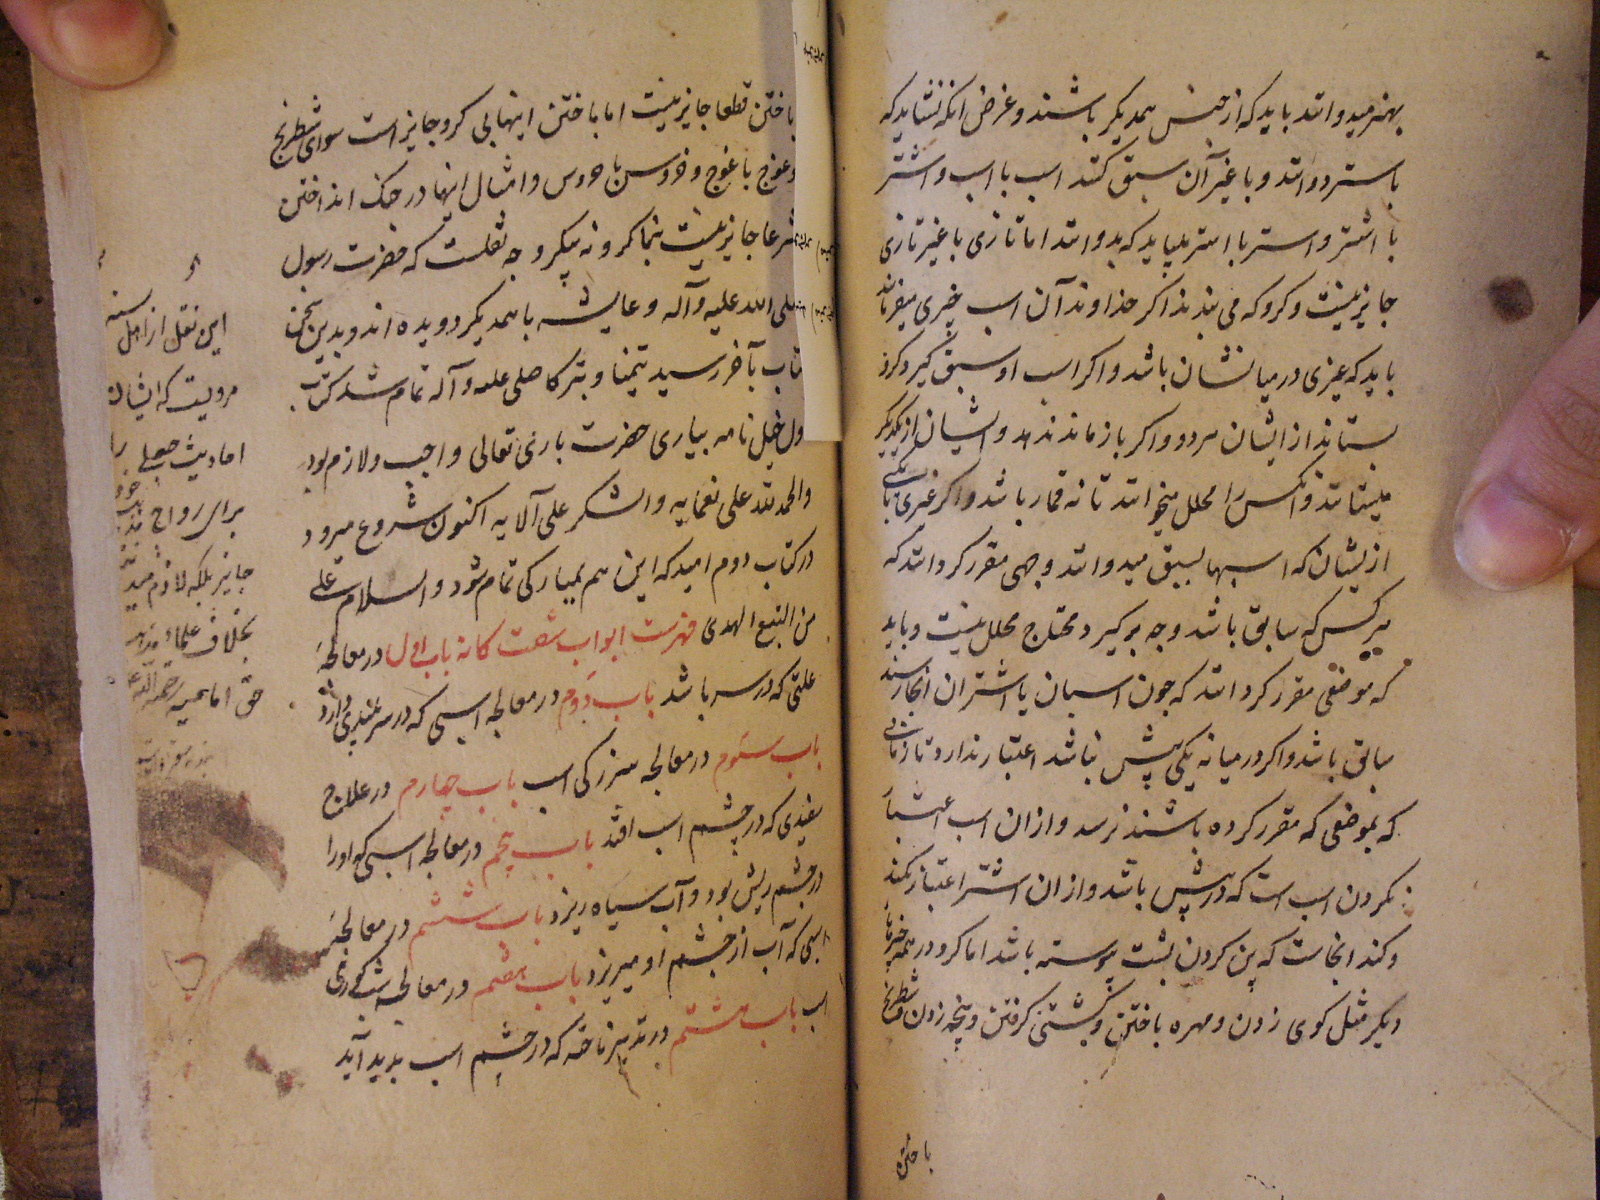 بهنر میدوانند باید که از جنس همدیگر باشند و غرض آنکه نشاید که
با ستر دوانند و با غیر آن سبق کنند اسب با اسب و اشتر
با اشتر و استر با استر میباید که بدوانند اما تازی با غیر تازی
جایز نیست و کرو که می بندند اکر خداوند آن اسب چیزی
باید که غیری در میانشان باشد و اکر اسب او سبق گیرد کرو
بستاند از ایشان و اکر باز ماند ندهد و ایشان از یکدیگر
نستانند و آنکس را محلل میخوانند تا نه قمار باشد و اکر غیری
از ایشان که اسبها بسبق میدوانند وجهی مقرر کردانند که
هر کس که سابق باشد وجه بر گیرد محتاج محلل نیست و باید
که موضعی مقرر کردانند که چون اسبان یا اشتران آنجا رسند
سابق باشد و اکر در میانه یکی پیش باشد اعتبار ندارد تا زمانی
که بموضعی که مقرر کرده باشند نرسد و از آن اسب اعتبار
بکردن اسب است که در پیش باشد و از آن اشتر اعتبار بکند
و کند آنجاست که بن کردن بپشت پیوسته باشد اما کرو در همه
دیگر مثل کوی زدن و مهره باختن و کشتی کرفتن و پنجه زدن و شطرنج
باختن
باختن قطعا جایز نیست اما باختن اینها بی کرو جایز است سوای شطرنج
و غوج با غوج و خروس با خروس و امثال اینها در جنک انداختن
شرعا جایز نیست نه با کرو نه بیکرو چه نقلست که حضرت رسول
صلی الله علیه و آله و عایشه با همدیگر دویده اند و بدین سخن
کتاب بآخر رسید تیمنا و تبرکا صلی علیه و آله تمام شد کتاب
اول خیل نامه بیاری حضرت باری تعالی و اجب و لازم بود
والحمد لله علی نعمایه والشکر علی آلایه اکنون شروع میرود
در کتاب دوم امید که این هم بمبارکی تمام شود والسلام علی
من اتبع الهدی فهرست ابواب شصت کانه باب اول در معالجهٔ
علتی که در سر باشد باب دوم در معالجه اسبی که در سر
باب سیوم در معالجه سر بزرکی اسب باب چهارم در علاج
سفیدی که در چشم اسب افتد باب پنجم در معالجه اسبی که او را
در چشم ریش بود و آب سیاه ریزد باب ششم در معالجهٔ
اسبی که آب از چشم او میریزد باب هفتم در معالجه شبکوری
اسب باب هشتم در تدبیر ناخنه که در چشم اسب بدید آید
این نقل از اهل سنه
مرویست که ایشان
احادیث جعلی را
برای رواج
جایز بلکه لازم میدانند
بخلاف علماء مذهب
حق امامیه